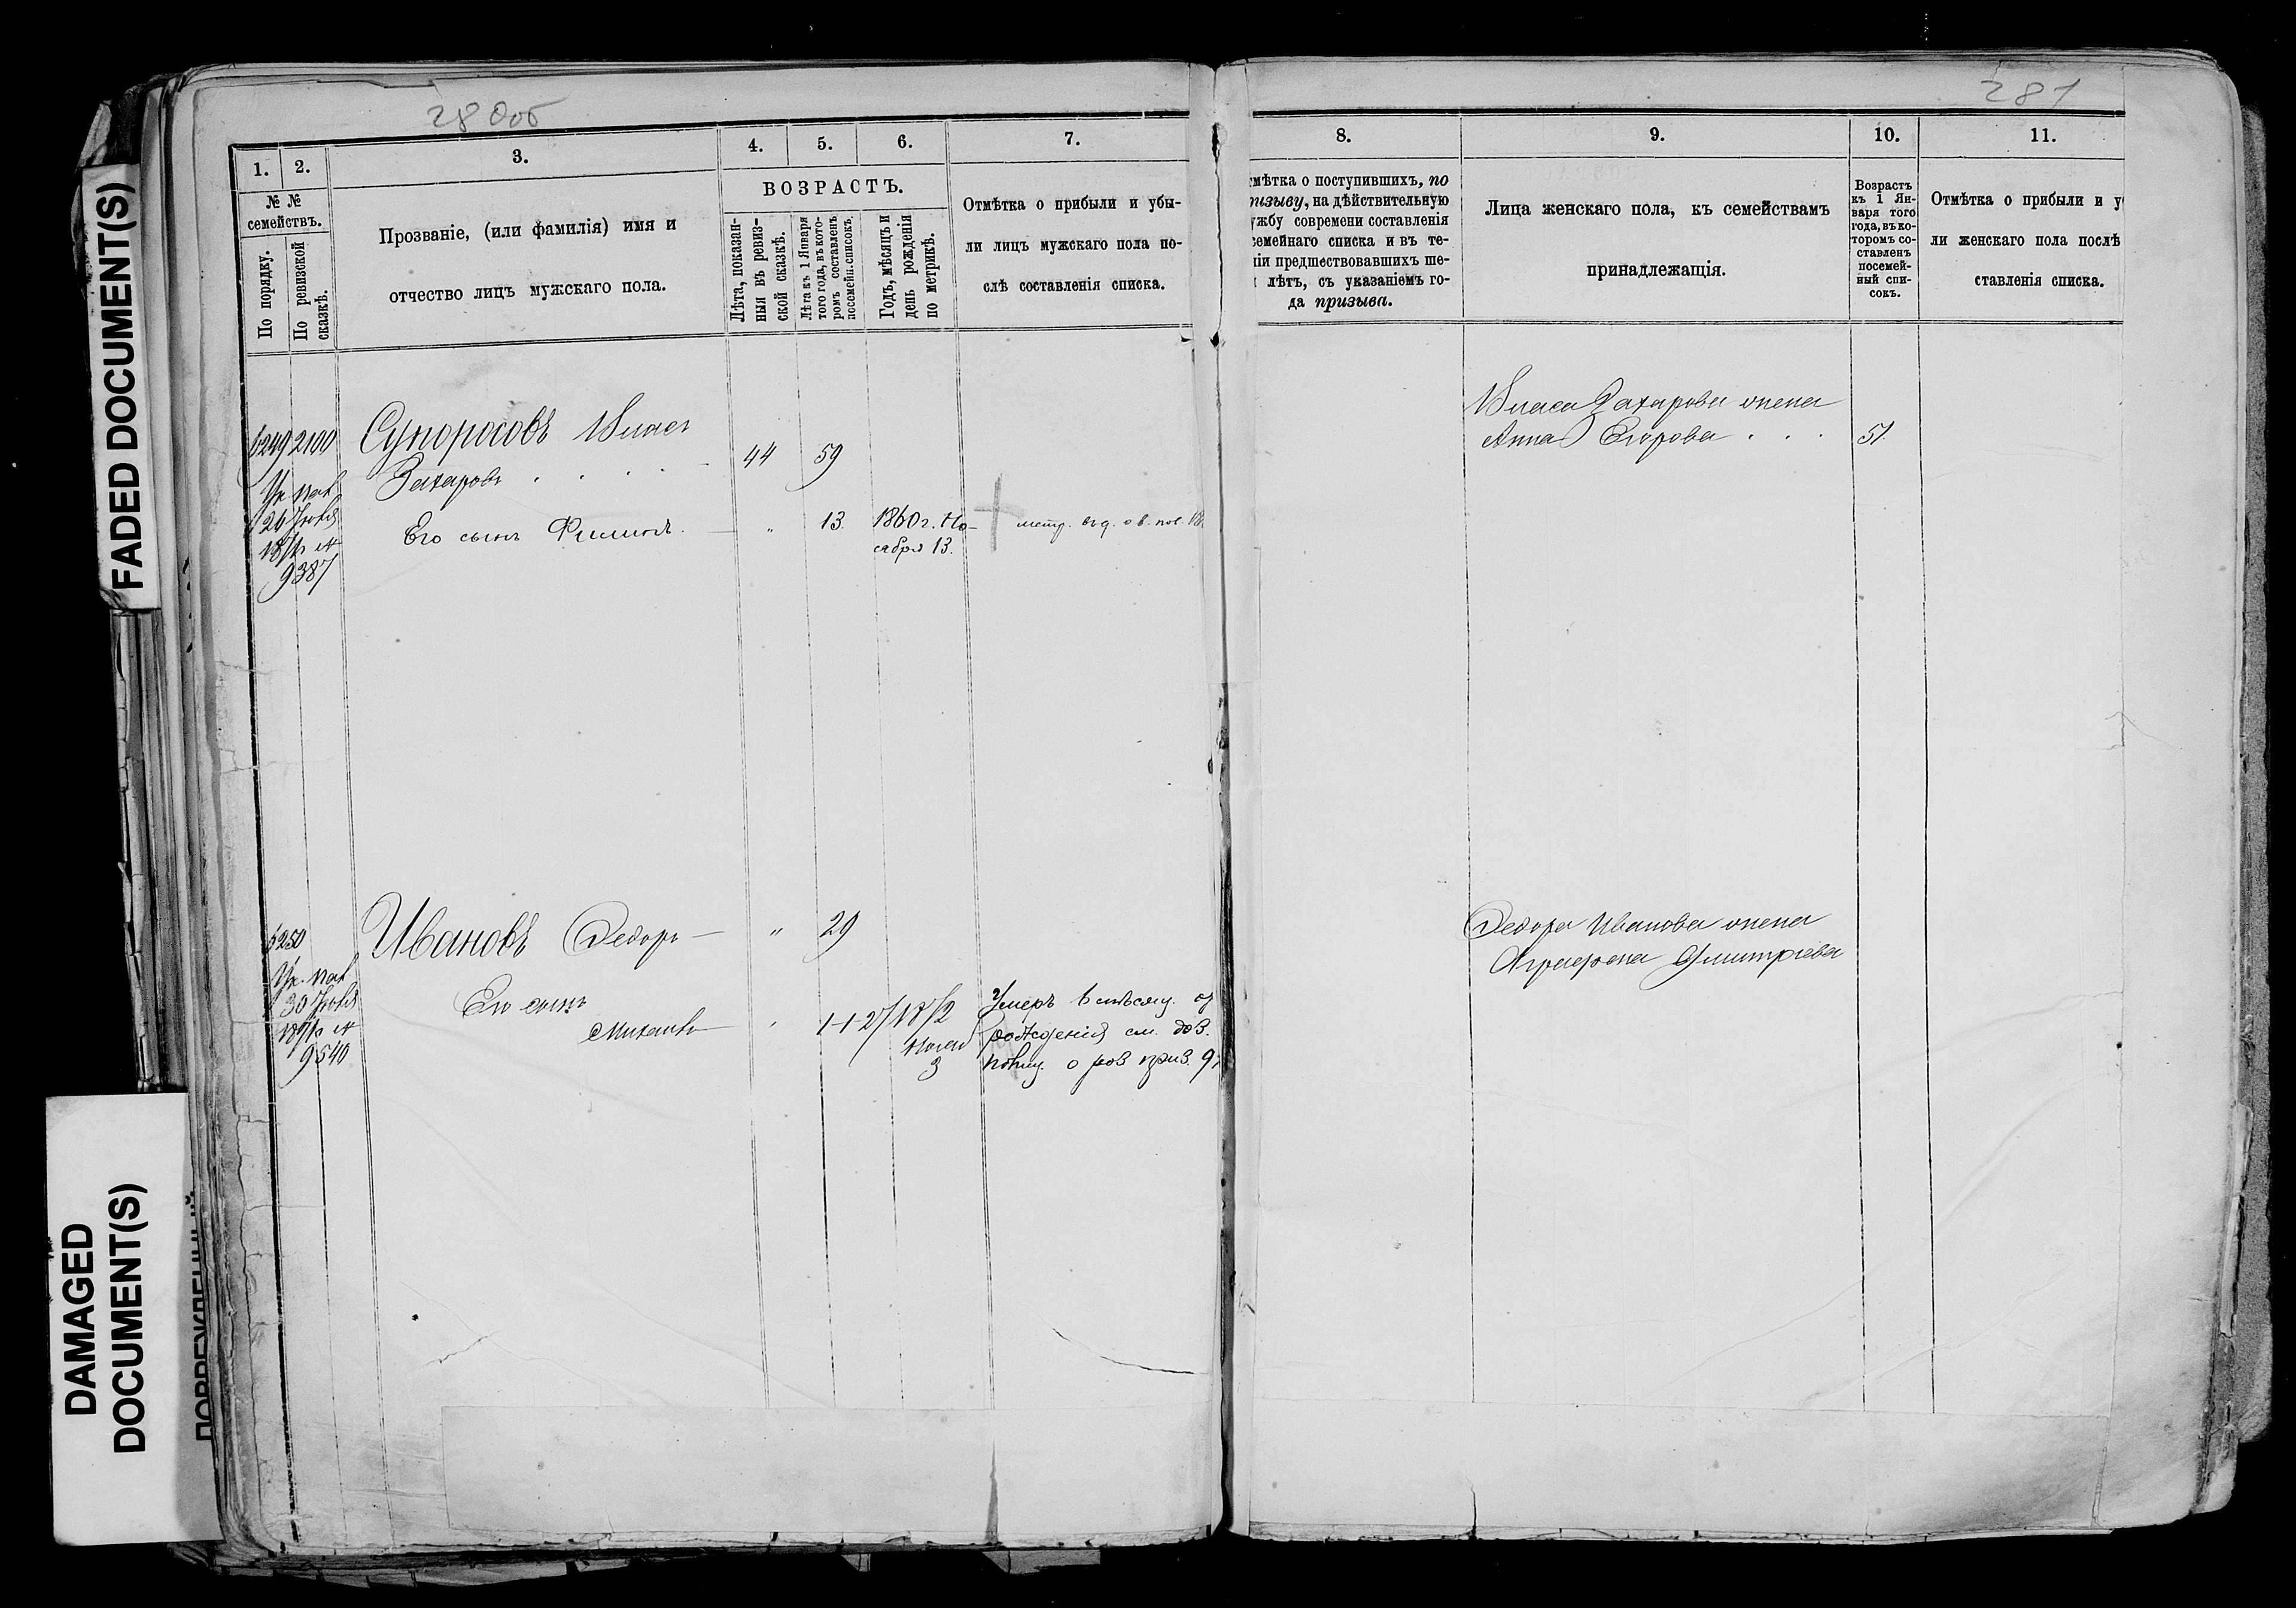 FADED DOCUMENT(S)
DAMAGED
DOCUMENT(S)
280об
1.
2.
3.
4.
5.
6.
7.
№ №
семействъ.
По порядку.
По ревизской
сказкѣ.
Прозваніе, (или фамилія) имя и
отчество лицъ мужскаго пола.
ВОЗРАСТЪ.
Лѣта, показан-
ныя въ ревиз-
ской сказкѣ.
Лѣта къ 1 Января
того года, въ кото-
ромъ составленъ
посемейн. списокъ.
Годъ, мѣсяцъ и
день рожденія
по метрикѣ.
Отмѣтка о прибыли и убы-
ли лицъ мужскаго пола по-
слѣ составленія списка.
6249 2100
Супоросовъ Власъ
Захаровъ . . . .
44 59
Ук. пал.
20 Іюня
9387
Его сынъ Филипъ
" 13 1860 г. Но-
ября 13.
метр.
6250
Ивановъ Ѳедоръ — " 29
Ук. пал.
30 Іюня
9540
Его сынъ
Михаилъ
1872
3
Умеръ
рожденія см.
о приз.
281
8.
9.
10.
11.
мѣтка о поступившихъ, по
изыву, на дѣйствительную
ужбу современи составленія
семейнаго списка и въ те-
іи предшествовавшихъ ше-
лѣтъ, съ указаніемъ го-
да призыва.
Лица женскаго пола, къ семействамъ
принадлежащія.
Возрастъ
къ 1 Ян-
варя того
года, въ ко-
торомъ со-
ставленъ
посемей-
ный спи-
сокъ.
Отмѣтка о прибыли и у
ли женскаго пола послѣ
ставленія списка.
Власа Захарова жена
Анна Егорова . . . 51.
Ѳедора Иванова жена
Аграфена Дмитріева